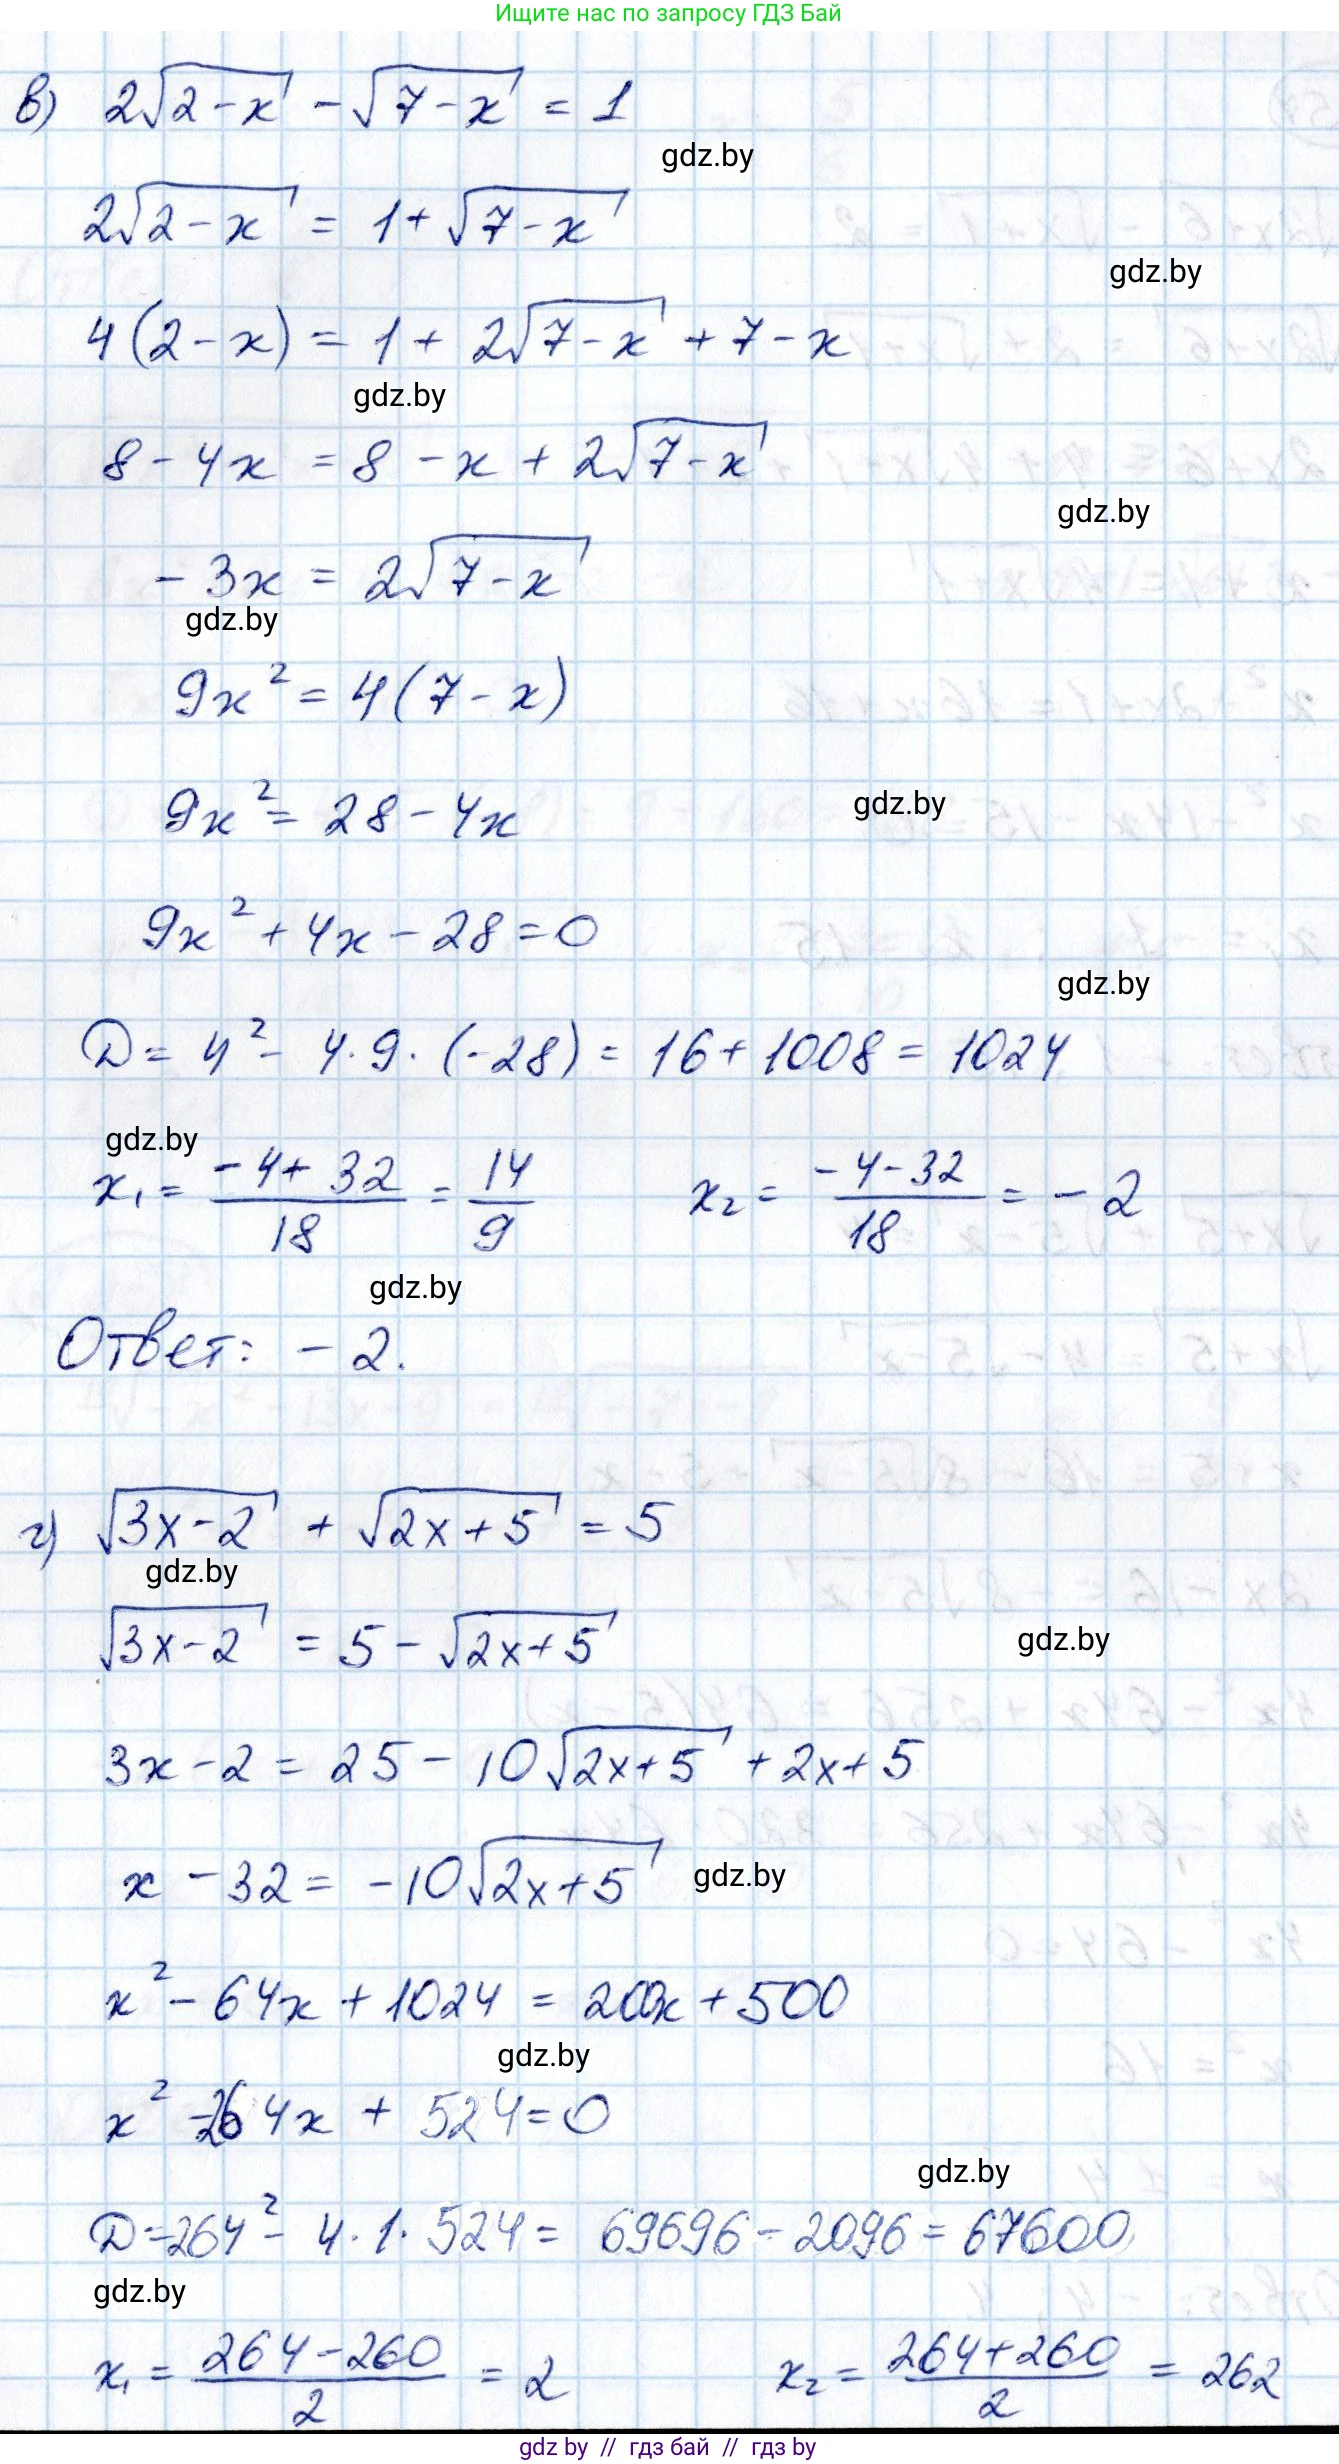 Ищите нас по запросу ГДЗ Бай
в) 2√(2-x) - √(7-x) = 1
gdz.by
2√(2-x) = 1 + √(7-x)
gdz.by
4(2-x) = 1 + 2√(7-x) + 7 - x
gdz.by
8 - 4x = 8 - x + 2√(7-x)
gdz.by
-3x = 2√(7-x)
gdz.by
9x² = 4(7-x)
9x² = 28 - 4x
gdz.by
9x² + 4x - 28 = 0
gdz.by
D = 4² - 4·9·(-28) = 16 + 1008 = 1024
gdz.by
x₁ = (-4+32)/18 = 14/9 x₂ = (-4-32)/18 = -2
gdz.by
Ответ: -2.
г) √(3x-2) + √(2x+5) = 5
gdz.by
√(3x-2) = 5 - √(2x+5)
gdz.by
3x - 2 = 25 - 10√(2x+5) + 2x + 5
x - 32 = -10√(2x+5)
gdz.by
x² - 64x + 1024 = 200x + 500
gdz.by
x² - 264x + 524 = 0
gdz.by
D = 264² - 4·1·524 = 69696 - 2096 = 67600
gdz.by
x₁ = (264-260)/2 = 2 x₂ = (264+260)/2 = 262
gdz by // гдз бай // gdz by